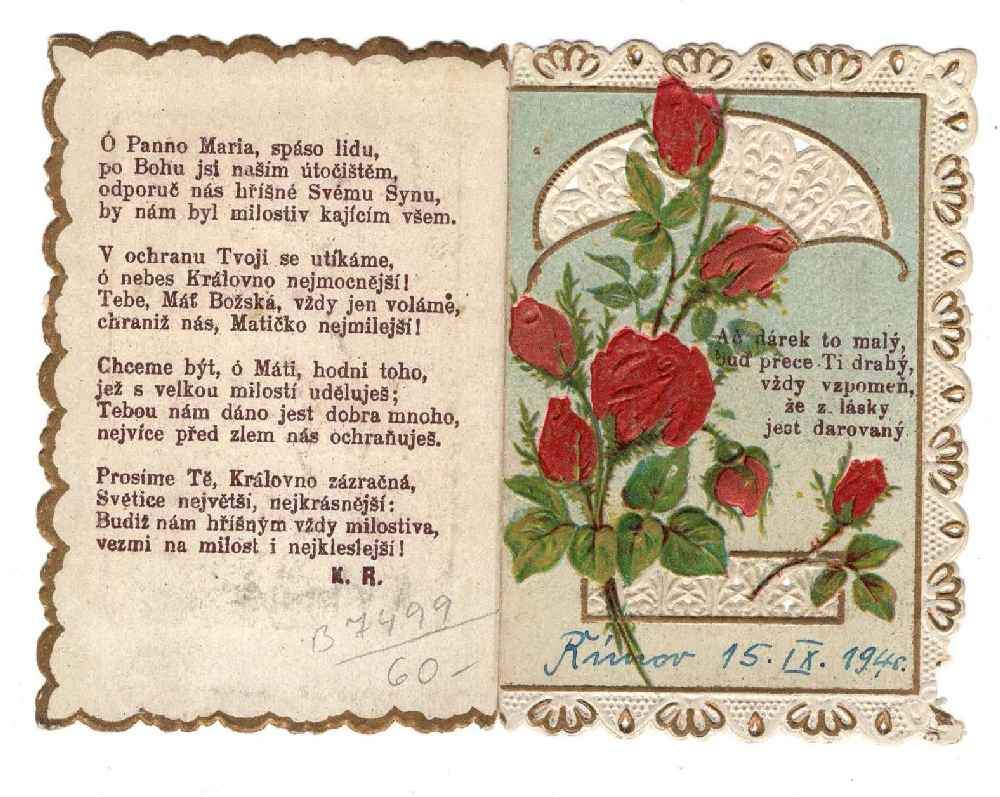 Ó Panno Maria, spáso lidu,
po Bohu jsi naším útočištěm,
odporuč nás hříšné Svému Synu,
by nám byl milostiv kajícím všem.
V ochranu Tvoji se utíkáme,
ó nebes Královno nejmocnější!
Tebe, Máť Božská, vždy jen voláme,
chraniž nás, Matičko nejmilejší!
Chceme být, ó Máti, hodni toho,
jež s velkou milostí uděluješ;
Tebou nám dáno jest dobra mnoho,
nejvíce před zlem nás ochraňuješ.
Prosíme Tě, Královno zázračná,
Světice největší, nejkrásnější:
Budiž nám hříšným vždy milostiva,
vezmi na milost i nejkleslejší!
K. R.
B 7499
60-
Ač dárek to malý,
buď přece Ti drahý,
vždy vzpomeň,
že z lásky
jest darovaný
Římov 15. IX. 194